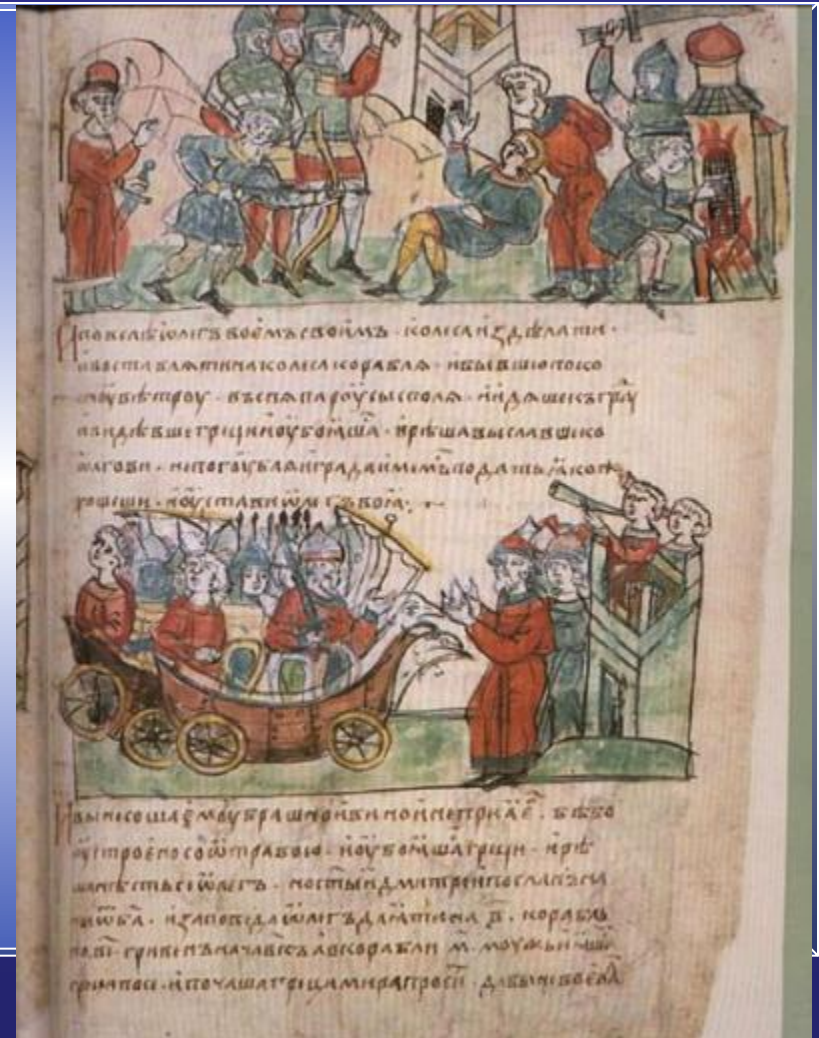 И повелѣ ѡлегъ воемъ своимъ · колеса издѣлати ·
и воставляти на колеса корабля · и бывшю поко
сноу вѣтроу · въспя пароусы с поля · и идяше къ граⷣу
и видѣвше греци и оубоꙗша · и рѣша выславше ко
ѡлгови · не погоубляи града имемъ подать ꙗко
хощеши · и оустави ѡлегъ воꙗ ·
И вынесоша ємоу брашно и вино и не приꙗ є · бѣ бо
оустроено со ѿравою · и оубоꙗша греци · и рѣ
ша нѣсть се ѡлегъ · но ст҃ыи дмитреи посланъ на
ны ѿ б҃а · и заповѣда ѡлегъ даꙗти на в҃ · корабль
по в҃і · гривенъ на а в корабли м҃ · моужьи
и почаша греци мира просити дабы не воевал